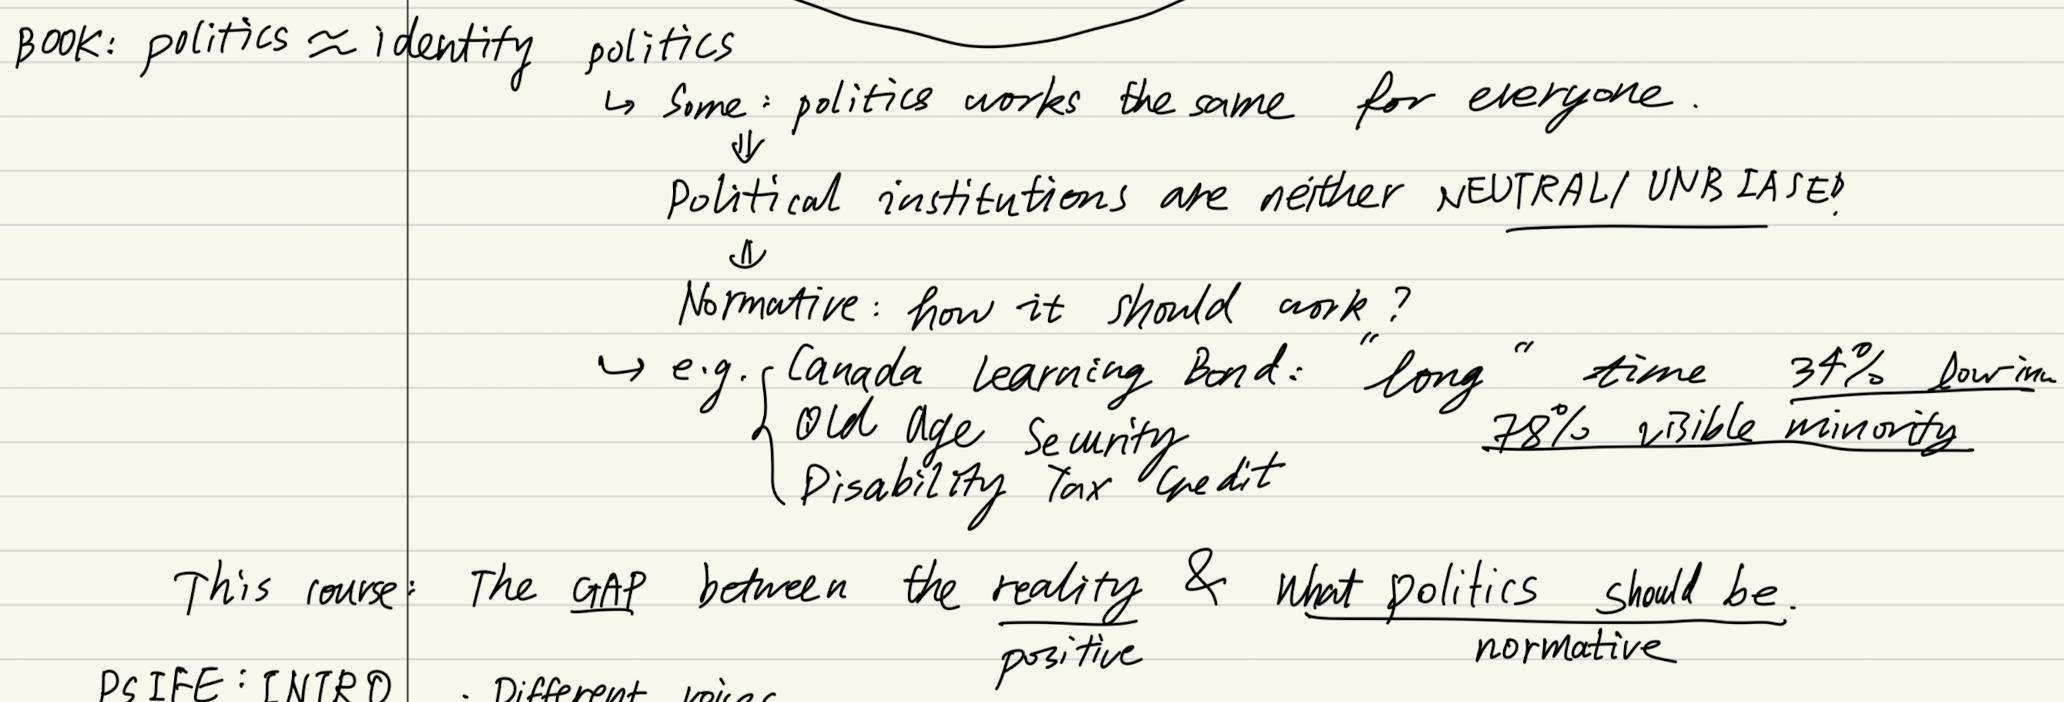 BOOK: politics ≈ identity politics
↳ Some: politics works the same for everyone.
⇓
Political institutions are neither NEUTRAL/ UNBIASED!
⇓
Normative: how it should work?
↳ e.g. { Canada Learning Bond: "long" time 34% low-inc
Old Age Security 78% visible minority
Disability Tax Credit
This course: The GAP between the reality & what politics should be.
positive normative
PSIFE: INTRO · Different voices